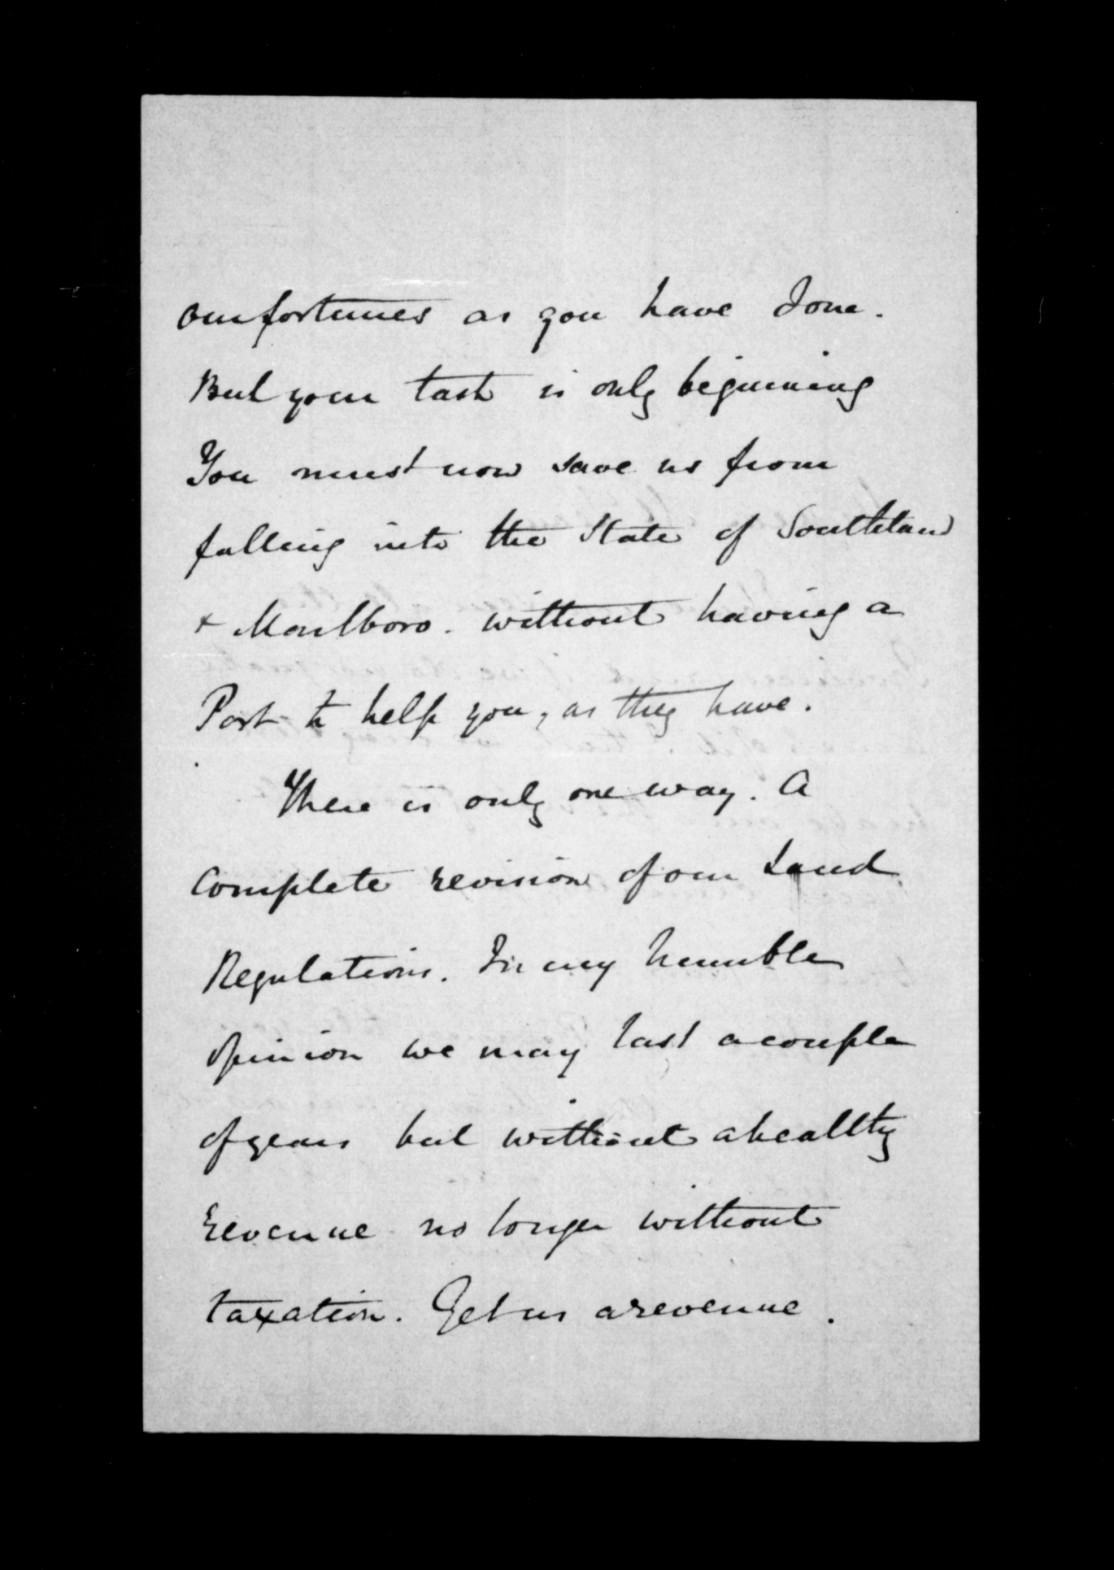 our fortunes as you have done.
But your task is only beginning
You must now save us from
falling into the State of Southland
& Marlboro. without having a
Port to help you, as they have.
There is only one way. A
complete revision of our Land
Regulations. In my humble
opinion we may last a couple
of years but without a healthy
revenue no longer without
taxation. Get us a revenue.